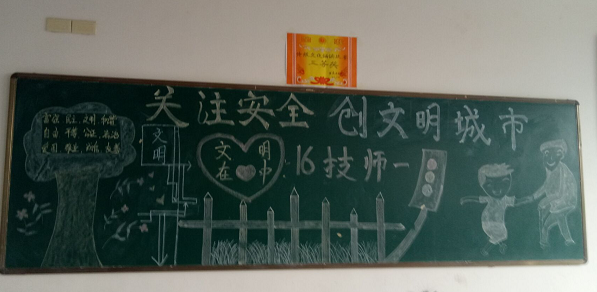 关注安全 创文明城市
富强 民主 文明 和谐
自由 平等 公正 法治
爱国 敬业 诚信 友善
文明
文明
在 中
16技师一